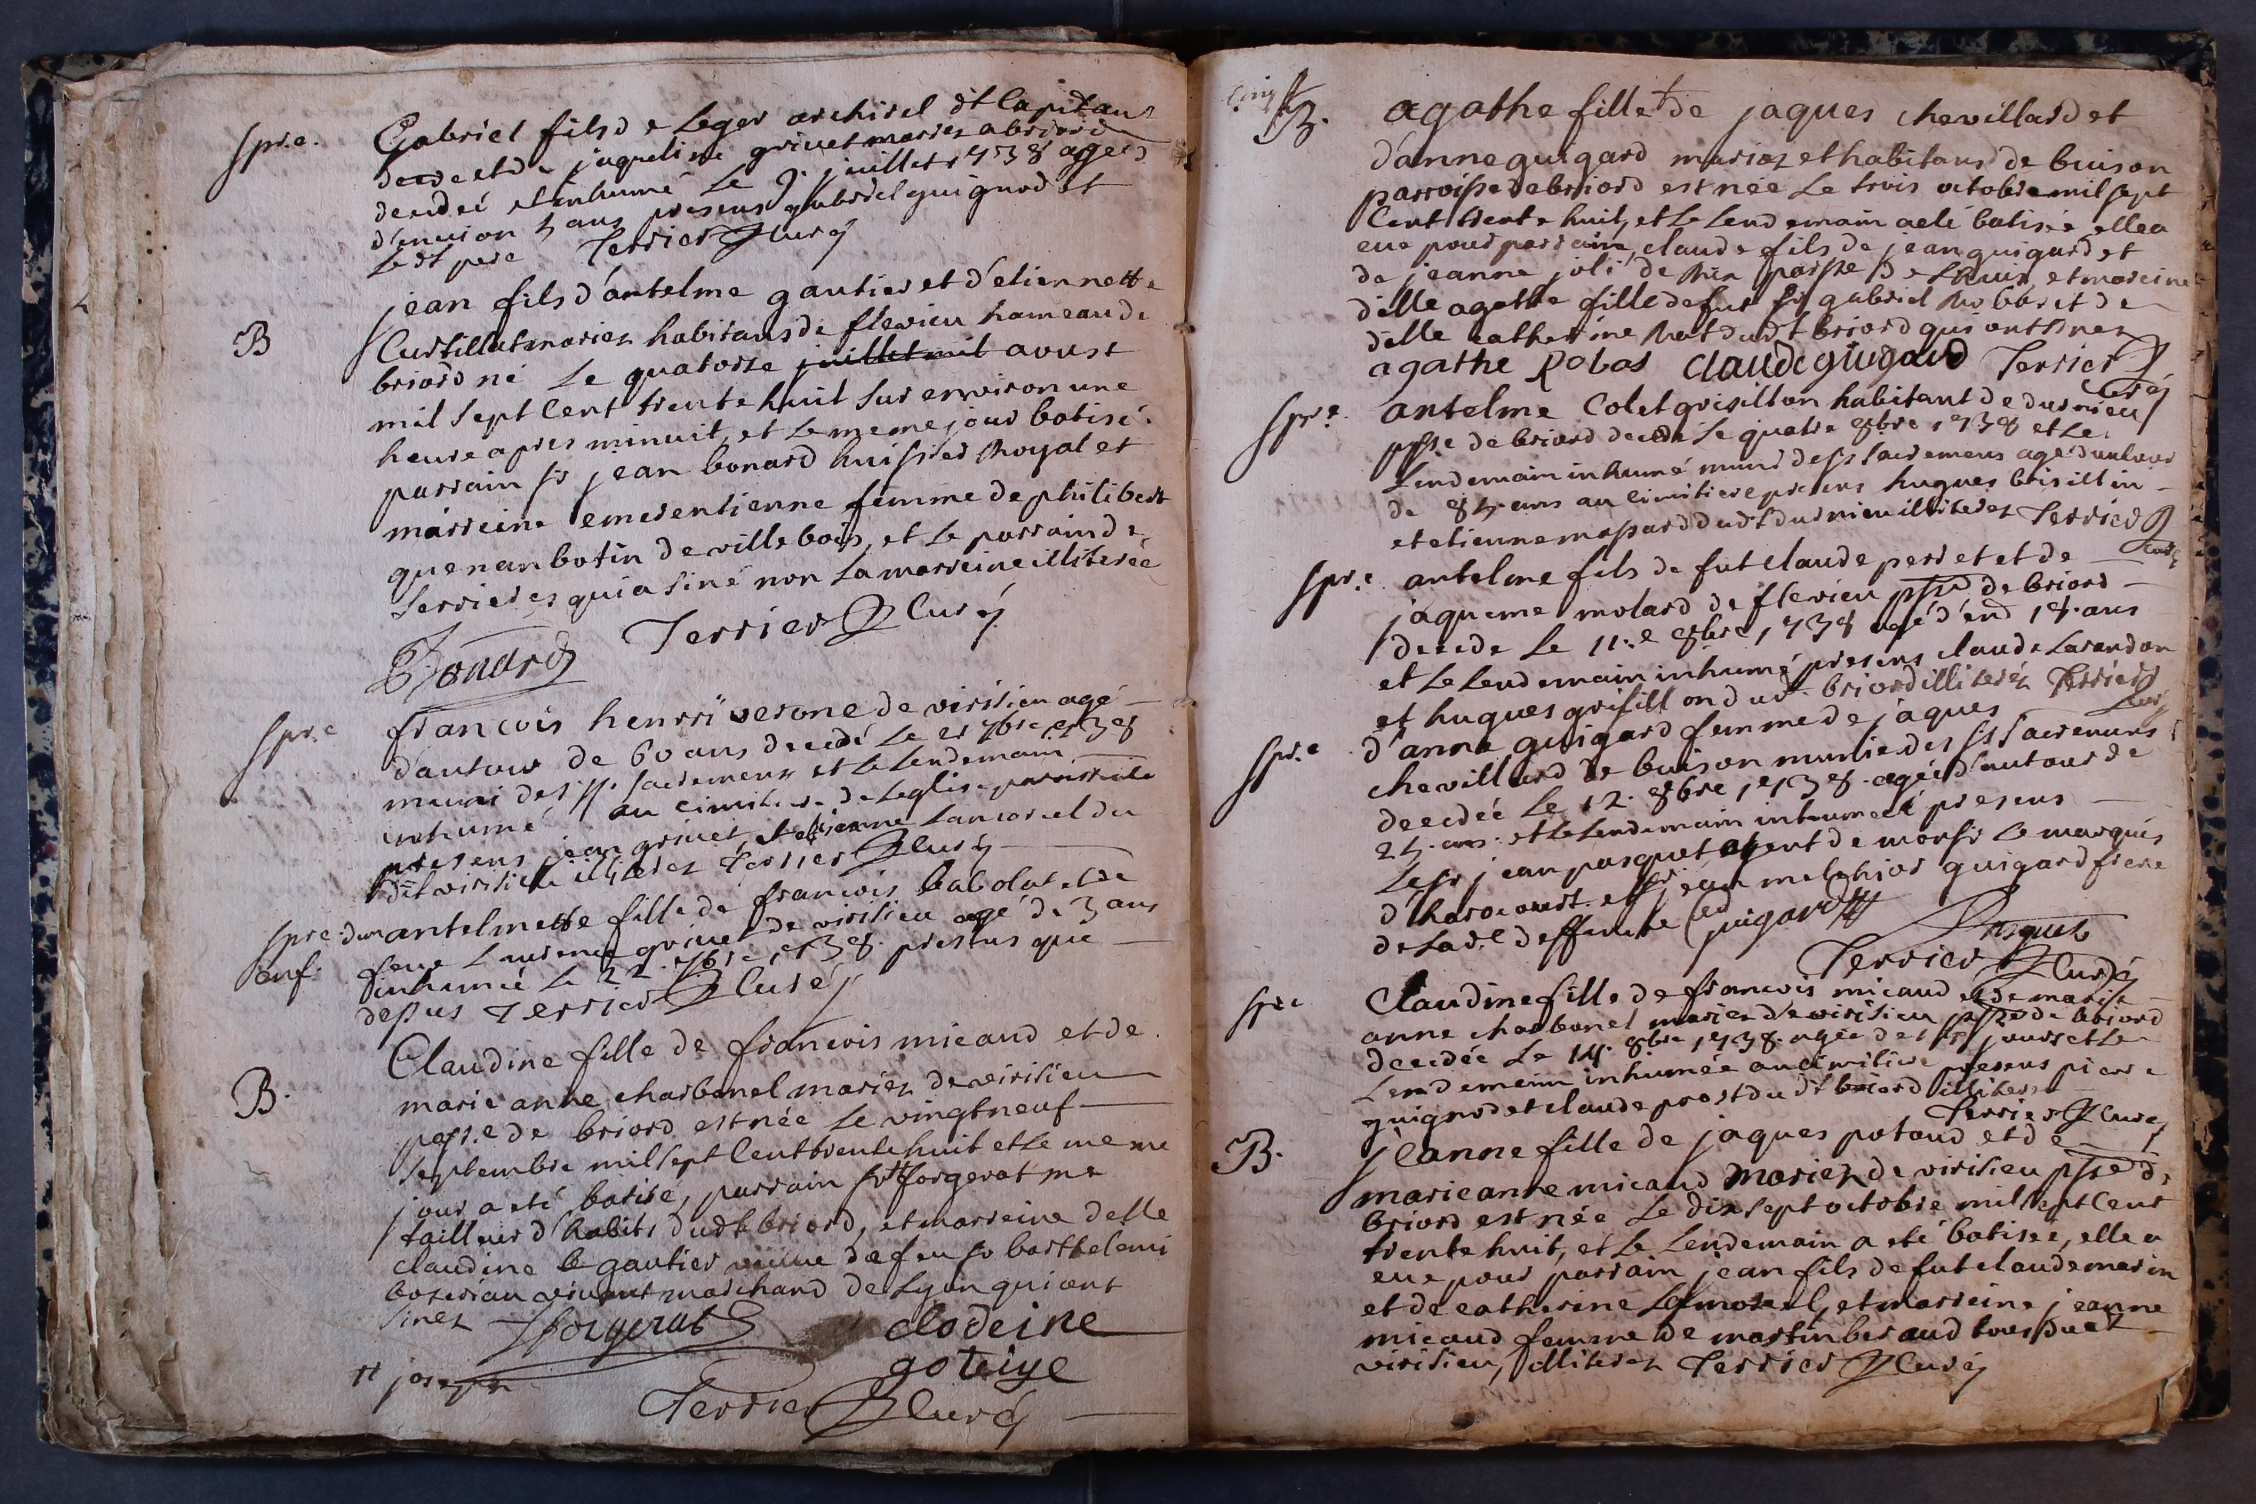 spr.e. Gabriel fils de Leger archirel dt Capitan
et de jaqueline grivet mariez a briord
decedeé et inhumé Le 9. juillet 1738 ageé
d'environ 5 ans presens gabriel guignod et
Le dt pere Terrier Curé
B jean fils d'antelme gautier et d'etiennette
Curtillat mariez habitans de flevieu hameau de
briord né Le quatorze juillet mil aoust
mil sept Cent trente huit sur environ une
heure apres minuit, et Le meme jour batisé.
parrain sr jean bonard huissier Royal et
marreine emerentienne femme de philibert
quenan botin de villebois, et Le parrain de
Serrieres qui a siné non La marreine illiterée
Terrier Curé
Bonard
spr.e françois henrri verone de virisieu agé
d'autour de 60 ans decedé Le 21 7bre 1738
muni des sts. sacremens et Le Lendemain
inhumé au cimitiere de Leglise parroissiale
presens jean grivet, et etienne Lancorel du
dit virisieu illiterez Terrier Curé
spr.e d'un enf. antelmette fille de françois babolat et de
feue Laurence grivet de virisieu agé de 3 ans
inhumé Le 22. 7bre 1738. presens que
dessus Terrier Curé
B. Claudine fille de françois micaud et de
marie anne charbonel mariez de virisieu
psse de briord est née Le vingt neuf
septembre mil sept Cent trente huit et Le meme
jour a eté batisée, parrain sr tt forgerat me
tailleur d'habits dudt briord, et marreine delle
claudine le gautier veuve de feu sr barthelemi
boterian vivant marchand de Lyon qui ont
sinez Jforgerat clodeine
goteiye
tt joseph
Terrier Curé
B. agathe fille de jaques chevillard et
d'anne guigard mariez et habitans de buison
parroisse de briord est née Le trois octobre mil sept
Cent trente huit, et Le Lendemain a eté batisée elle a
eue pour parrain, claude fils de jean guigard et
de jeanne joli de Rix parsse de Lhuis, et mareine
dlle agathe fille de fut sr gabriel Robas et de
dlle catherine Rut dudt briord qui ont sinez
agathe Robas Claude guigard Terrier
Curé
spr.e antelme Colet grisillon habitant de durnieu
psse de briord decedé Le quatre 8bre 1738 et Le
Lendemain inhumé muni des sts sacremens agé d'autour
de 85 ans au cimitiere presens hugues brisillin
et etienne massard dudt durnieu illiterez Terrier
Curé
spr.e antelme fils de fut claude perret et de
jaqueme molard de flevieu psse de briord
decede Le 11.e 8bre 1738 agé d'end 18. ans
et Le Lendemain inhumé presens claude Larandon
et hugues grisillon dudt briord illiterez Terrier
Curé
spr.e d'anne guigard femme de jaques
chevillard de buison munie des sts sacremens
decedée Le 12. 8bre 1738. agée d'autour de
25. ans. et Le Lendemain inhumeé presens
Le sr jean pasquet agent de monsr Le marquis
d'harocourt. et sr jean melchior guigard frere
de Lad.e deffunte Guigard Pasquet
Terrier Curé
spr.e Claudine fille de françois micaud et de marie
anne charbonel mariez de virisieu psse de briord
decedée Le 14. 8bre 1738. agée de 15 jours et Le
Lendemain inhumée au cimitiere presens pierre
guignod et claude prost du dt briord illiterez
Terrier Curé
B. jeanne fille de jaques potaud et de
marieanne micaud mariez de virisieu psse de
briord est née Le dix sept octobre mil sept Cent
trente huit, et Le Lendemain a eté batisée, elle a
eue pour parrain jean fils de fut claude marin
et de catherine Lamorel, et marreine jeanne
micaud femme de martin beraud tous dudt
virisieu, illiterez Terrier Curé